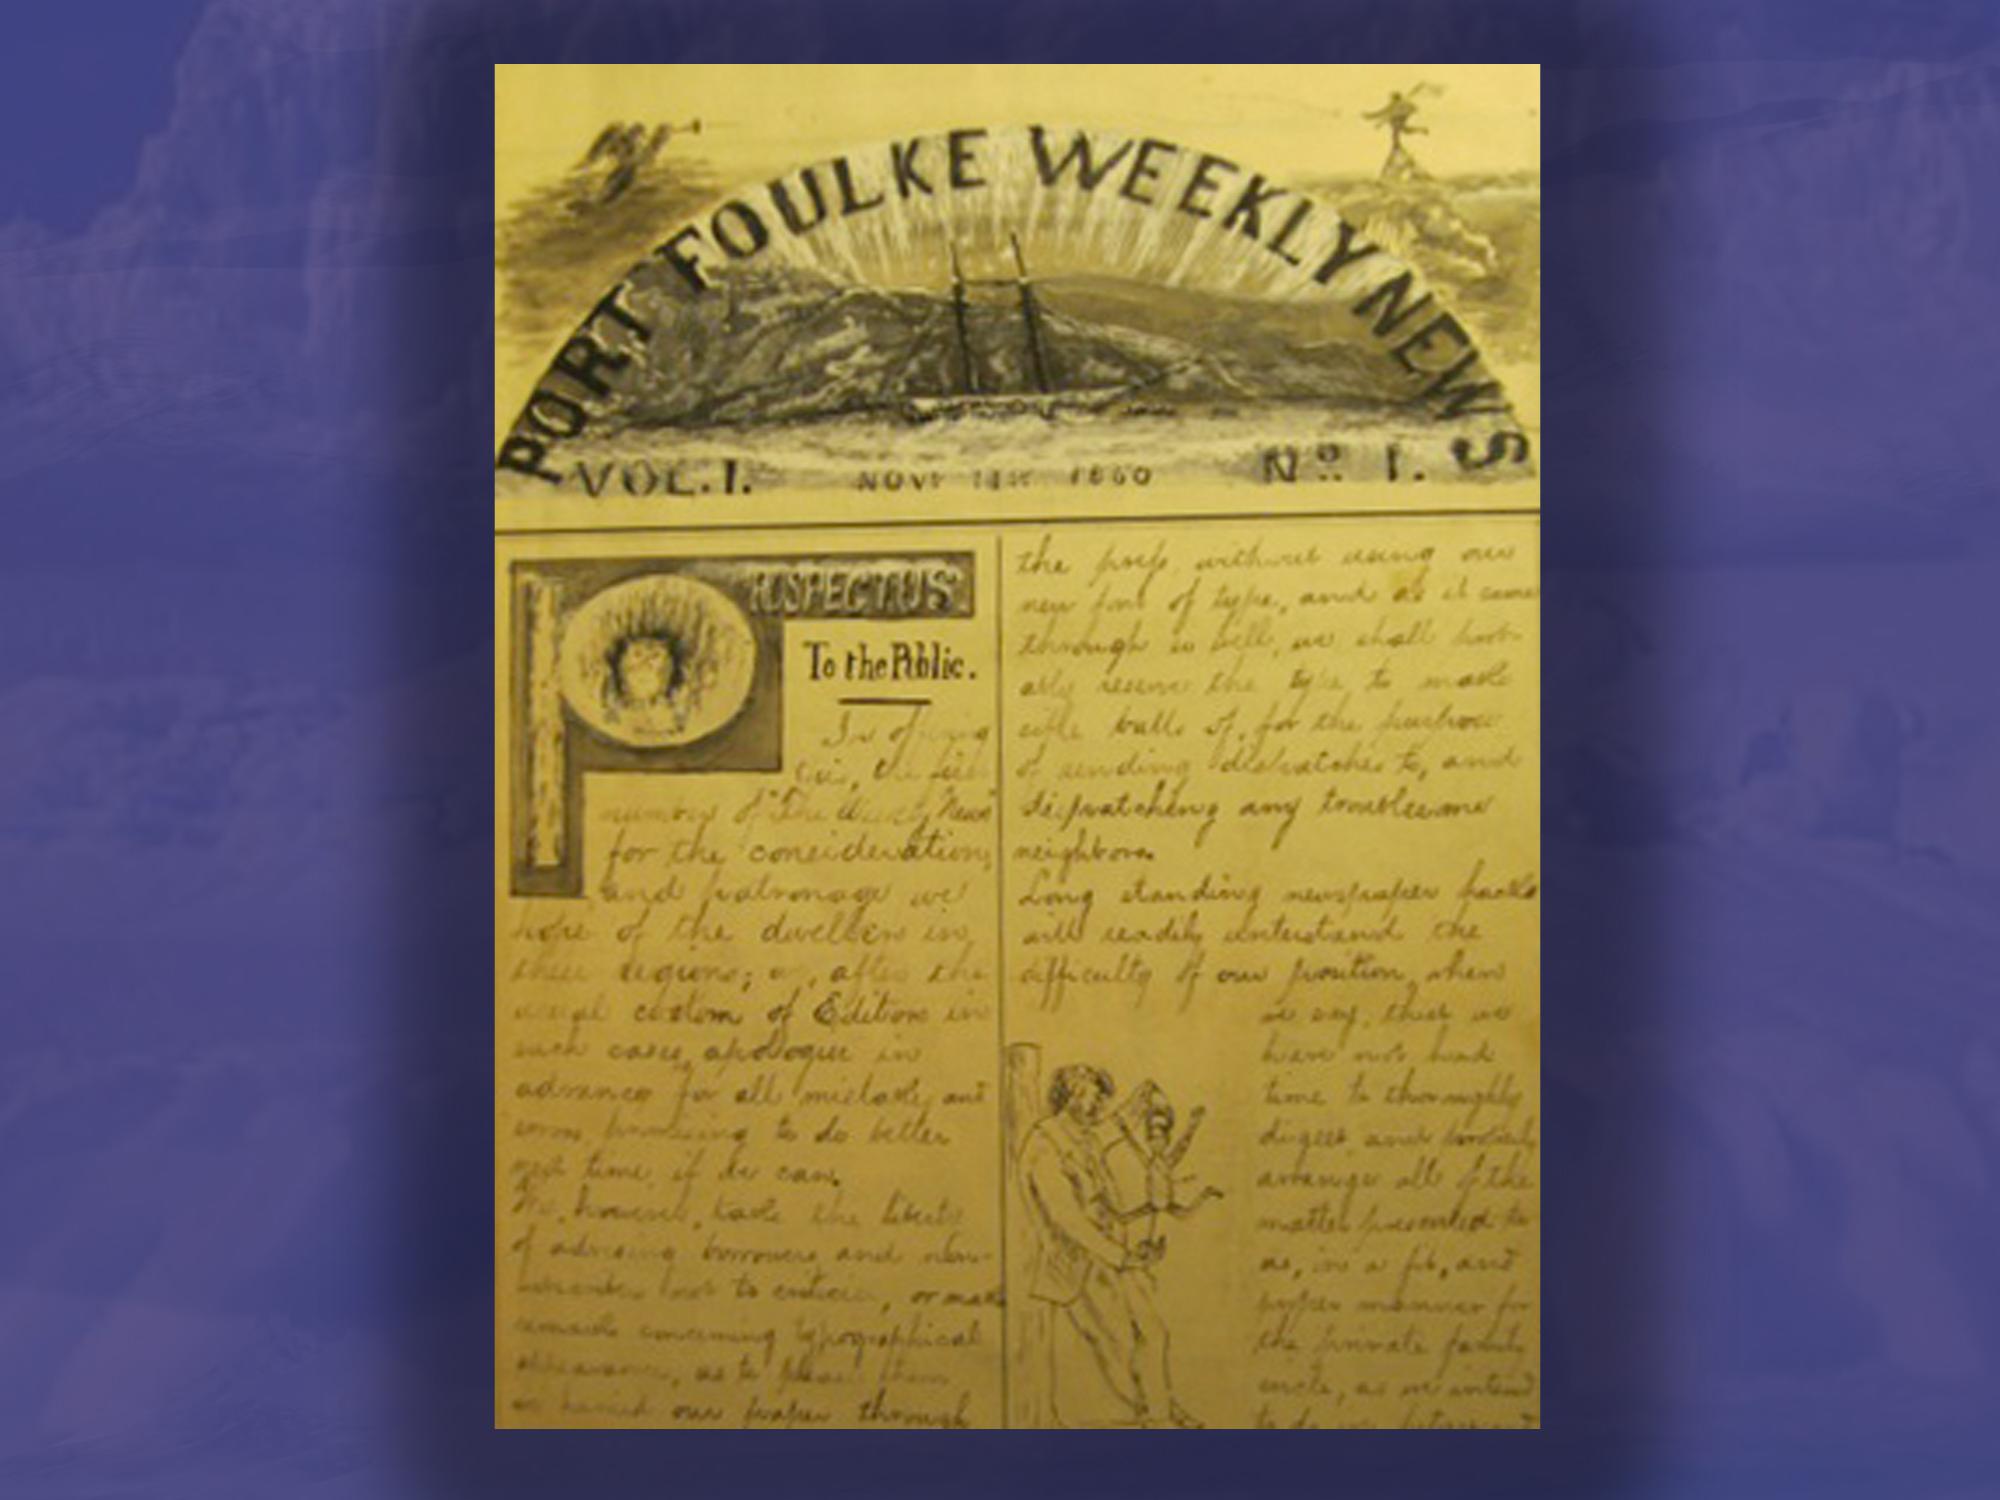 PORT FOULKE WEEKLY NEWS
VOL. I. NOVR 1860 No. 1.
PROSPECTUS
To the Public.
In offering
this, the first
number of "The Weekly News"
for the consideration,
and patronage we
hope of the dwellers in
these regions; we, after the
usual custom of Editors in
such cases, apologise in
advance for all mistakes, and
promising to do better
next time, if we can.
We, however, take the liberty
of advising borrowers and non-
not to criticise, or make
remarks concerning typographical
appearance, as to please them
our paper through
the press, without using our
new font of type, and as it came
through so well, we shall prob-
ably reserve the type, to make
rifle balls of, for the purpose
of sending dispatches to, and
dispatching any troublesome
neighbors.
Long standing newspaper
will readily understand the
difficulty of our position, when
we say, that we
have not had
time to thoroughly
digest and
arrange all of the
matter presented to
us, in a fit, and
proper manner for
the private family
circle, as we intend
to do